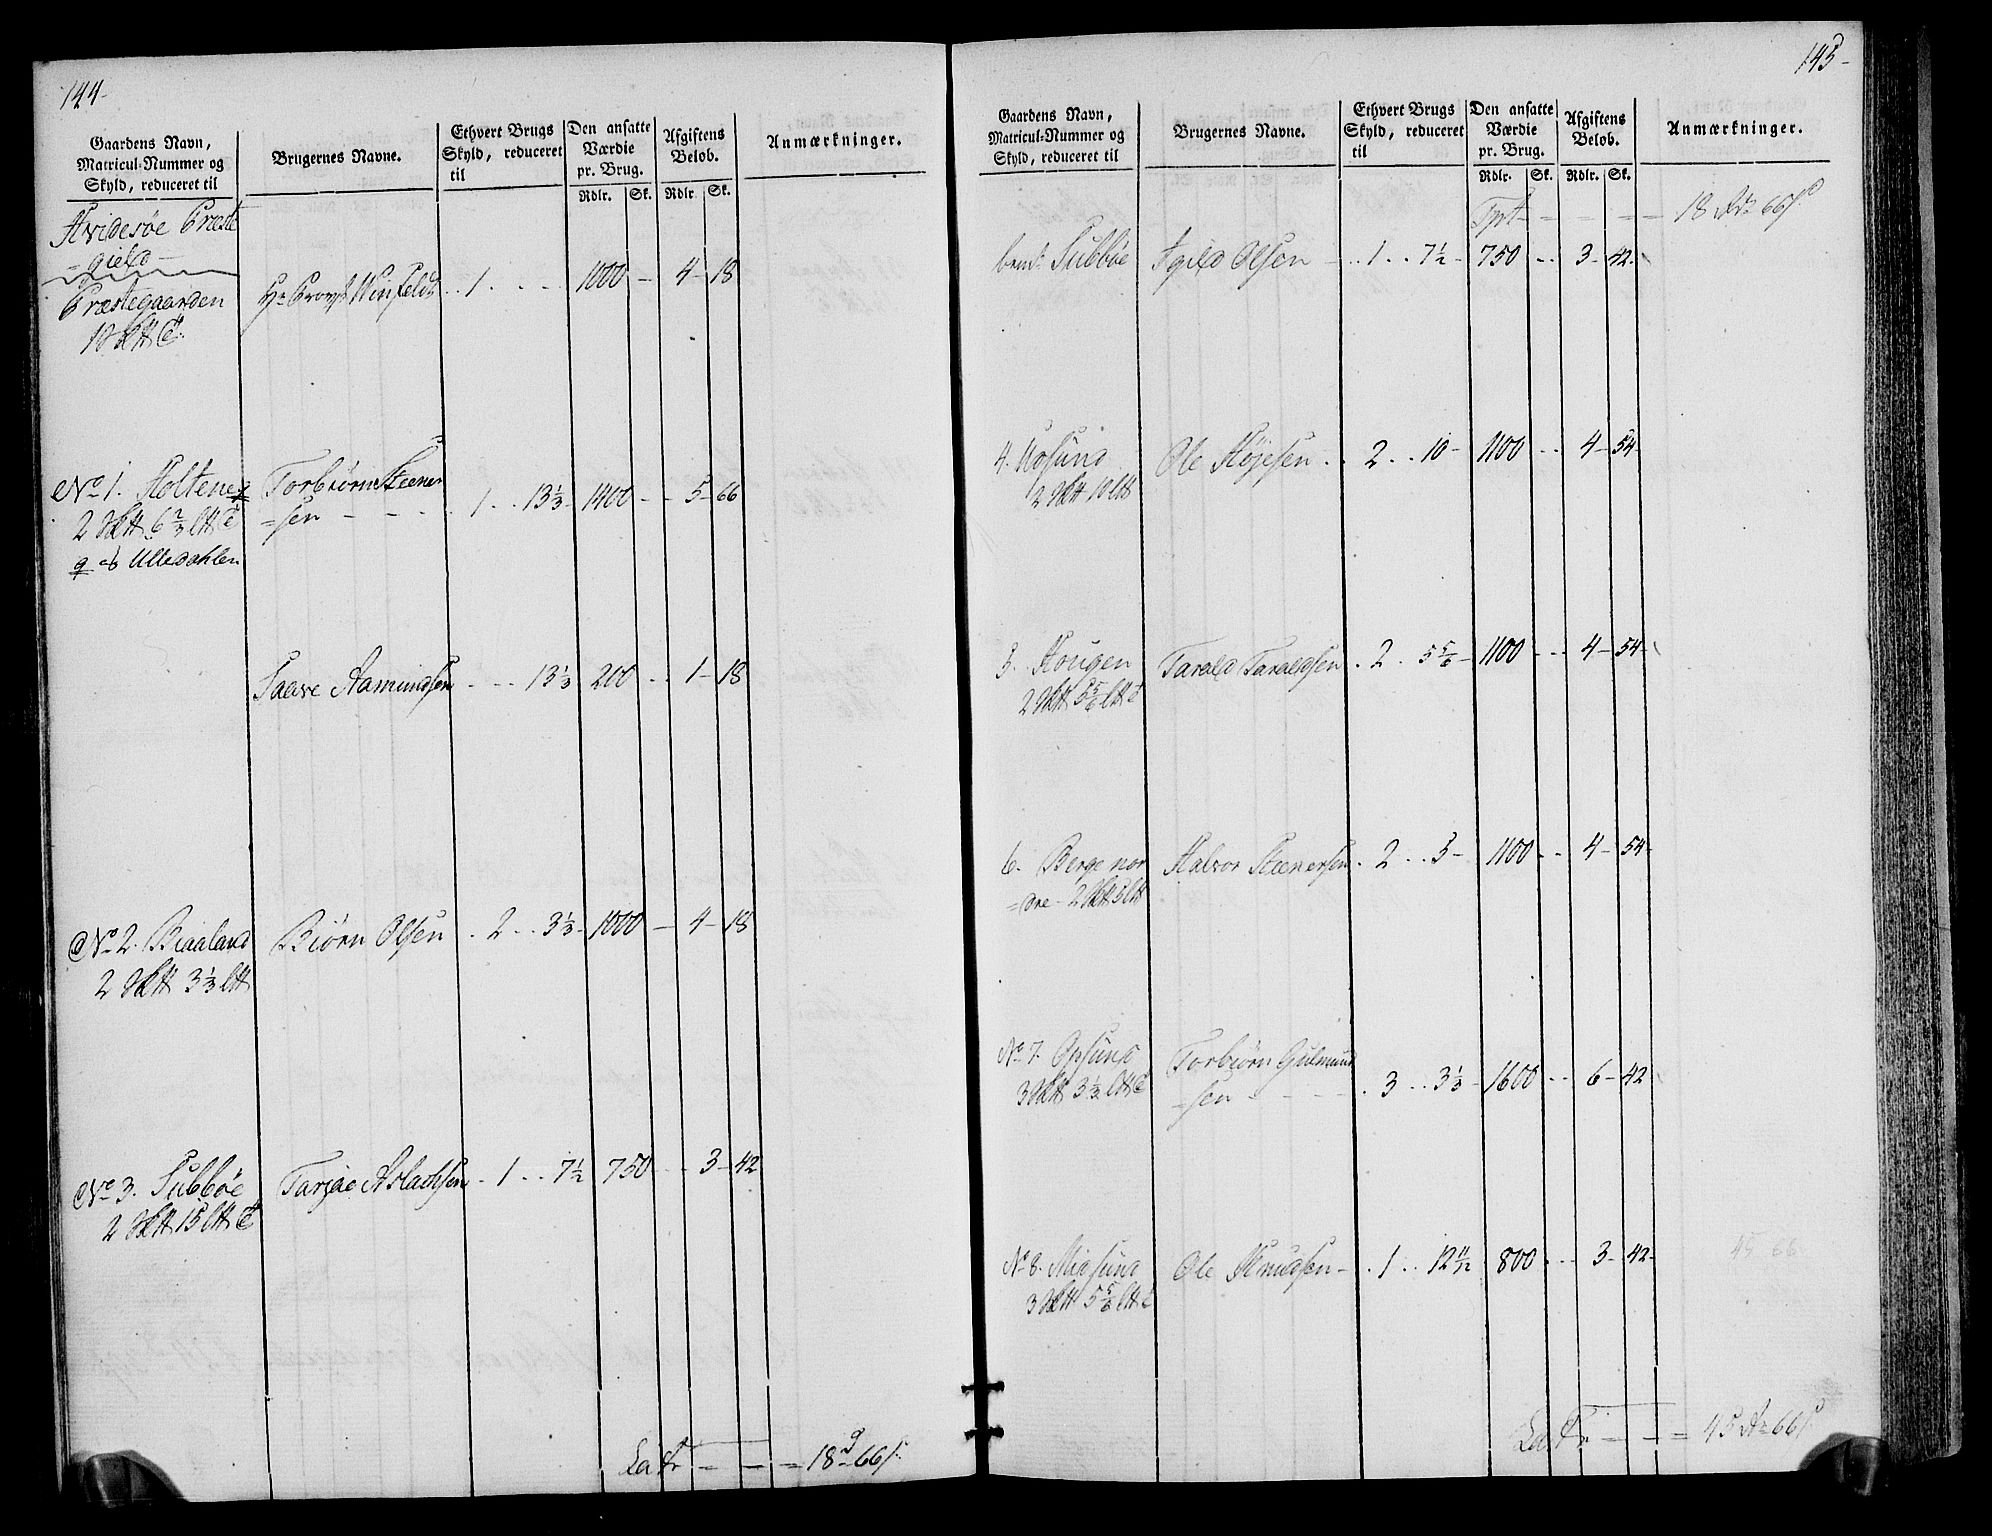 144-
Gaardens Navn,
Matricul-Nummer og
Skyld, reduceret til
Brugernes Navne.
Ethvert Brugs
Skyld, reduceret
til
Den ansatte
Værdie
pr. Brug.
Rdlr. Sk.
Afgiftens
Beløb.
Rdlr. Sk.
Anmærkninger.
Hvidesøe Præste
=gield-
Præstegaarden
Hr Provst Winfeldt .. 1 . . . . 1000 - 4 - 18
No 1. Holtene
2 6 2/3
Torbiørn Steener
=sen - - - 1 . . 13 1/3 - 1400 - - 5 - 66
og Ulledahlen
Saave Aamundsen - - - 13 1/3 200 - - 1 - 18
No 2. Biaaland
2 3 1/3
Biørn Olsen . 2 . . 3 1/3 - 1000 - 4 - 18
No 3. Subbøe
2 15
Tarjæe Aslachsen . 1 . . 7 1/2 750 - - 3 - 42
Lat - - = 18 66 s.
145-
Gaardens Navn,
Matricul-Nummer og
Skyld, reduceret til
Brugernes Navne.
Ethvert Brugs
Skyld, reduceret
til
Den ansatte
Værdie
pr. Brug.
Rdlr. Sk.
Afgiftens
Beløb.
Rdlr. Sk.
Anmærkninger.
Tprt - - - - - 18 66 s.
bem: Subbøe Egild Olsen - . . 1 . . 7 1/2 - 750 - - 3 - 42 -
4. Kosund
2 10
Ole Høiesen . . 2 . . 10 - 1100 - - 4 - 54 -
5. Hougen
2 5 5/6
Tarald Taraldsen . 2 . 5 5/6 - 1100 - - 4 - 54 -
6. Berge nor
=dre - 2 5
Halvor Steenersen . 2 . . 5 - 1100 - - 4 - 54 -
No 7. Opsund
3 3 1/3
Torbiørn Gulmund
=sen - - - - . 3 . . 3 1/3 - 1600 - - 6 - 42
No 8. Midsund
3 5 5/6
Ole Knudsen - . 1 . . 12 11/12 800 - - 3 - 42 -
45 66
Lat - - - = 45 66 s.